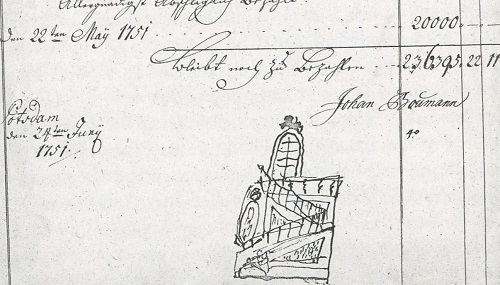 Allergnädigst Abschläglich Bezahlt
den 22ten Maÿ 1751 20000
bleibt noch zu Bezahlen 23695. 22 11
Johan Boumann
Potsdam
den 24ten Junÿ
1751.